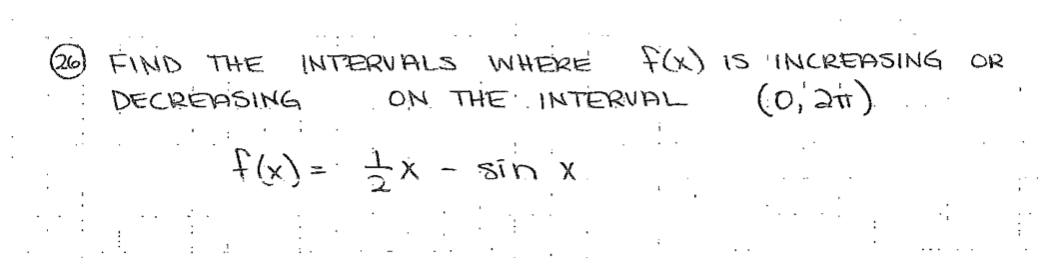 26 FIND THE INTERVALS WHERE f(x) IS INCREASING OR
DECREASING ON THE INTERVAL (0, 2π)
f(x) = 1/2 x - sin x